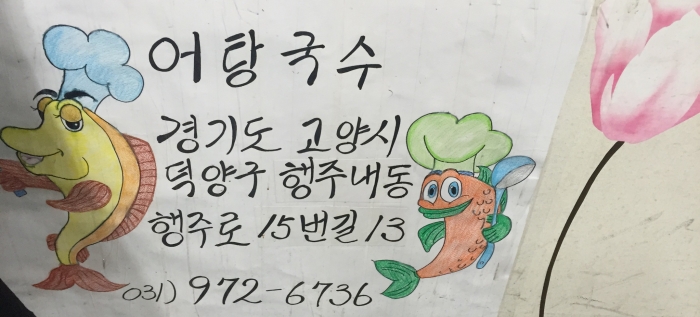 어탕국수
경기도 고양시
덕양구 행주내동
행주로 15번길 13
031) 972-6736